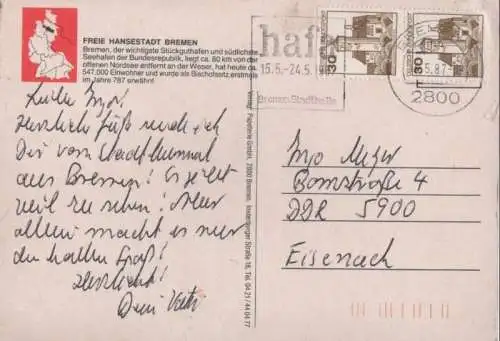 FREIE HANSESTADT BREMEN
Bremen, der wichtigste Stückguthafen und südlichste
Seehafen der Bundesrepublik, liegt ca. 80 km von der
offenen Nordsee entfernt an der Weser, hat heute ca.
547.000 Einwohner und wurde als Bischofssitz erstmals
im Jahre 787 erwähnt.
haf
15.5.-24.5.
Bremen Stadthalle
30
30
5.87
2800
Lieber Ingo!
Herzliche Grüße sende ich
Dir vom Stadtbummel
aus Bremen! Es gibt
viel zu sehen! Aber
allein macht es nur
den halben Spaß!
Herzlichst!
Dein Vater
Verlag: Papeterie GmbH, 2800 Bremen, Straße 16, Tel. 04 21/44 04 77
Ingo
4
DDR 5900
Eisenach